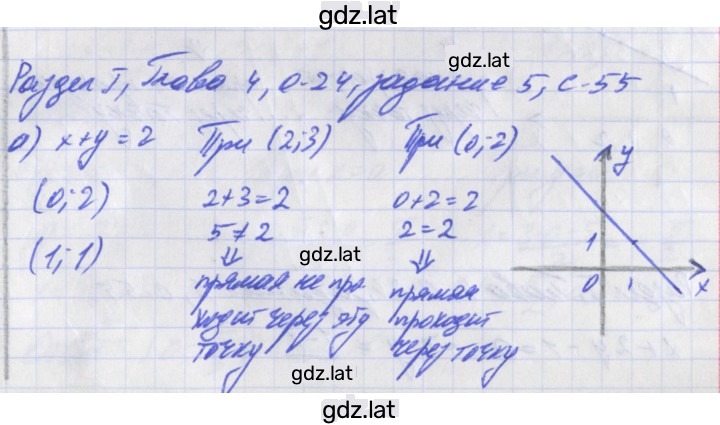 gdz.lat
Раздел I, Глава 4, О-24, задание 5, с-55
а) x+y=2 При (2;3) При (0;2)
(0;2) 2+3=2 0+2=2
gdz.lat
(1;1) 5≠2 2=2
⇓ ⇓
прямая не про- прямая
ходит через эту проходит
точку через точку
y
1
0 1 x
gdz.lat
gdz.lat